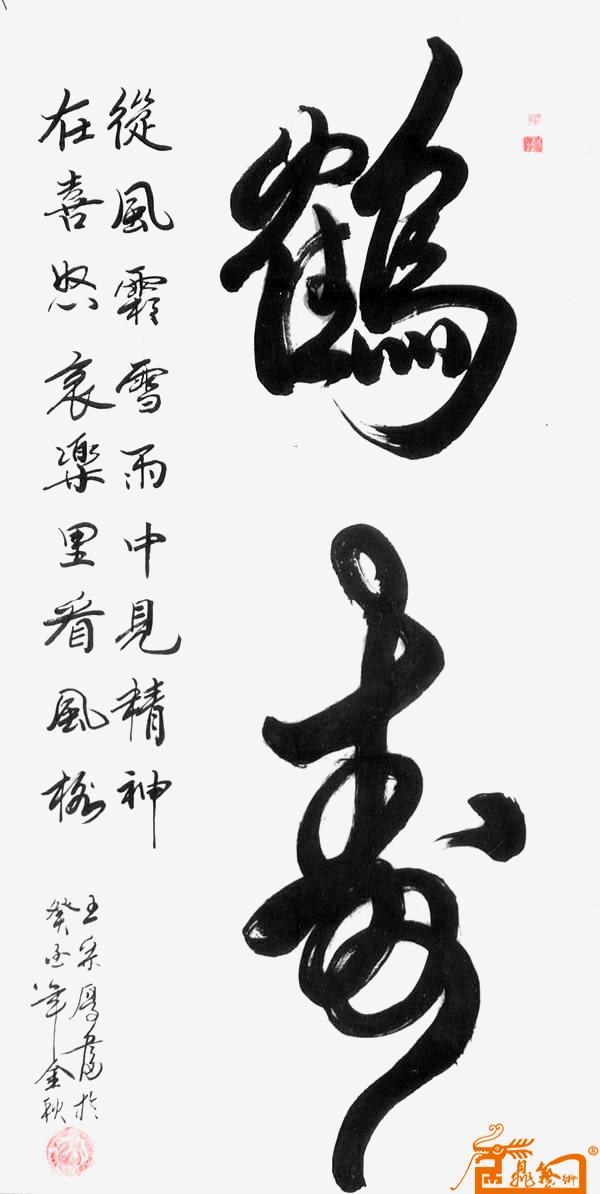 鶴壽
從風霜雪雨中見精神
在喜怒哀樂里看風格
王采鳳書於
癸年金秋